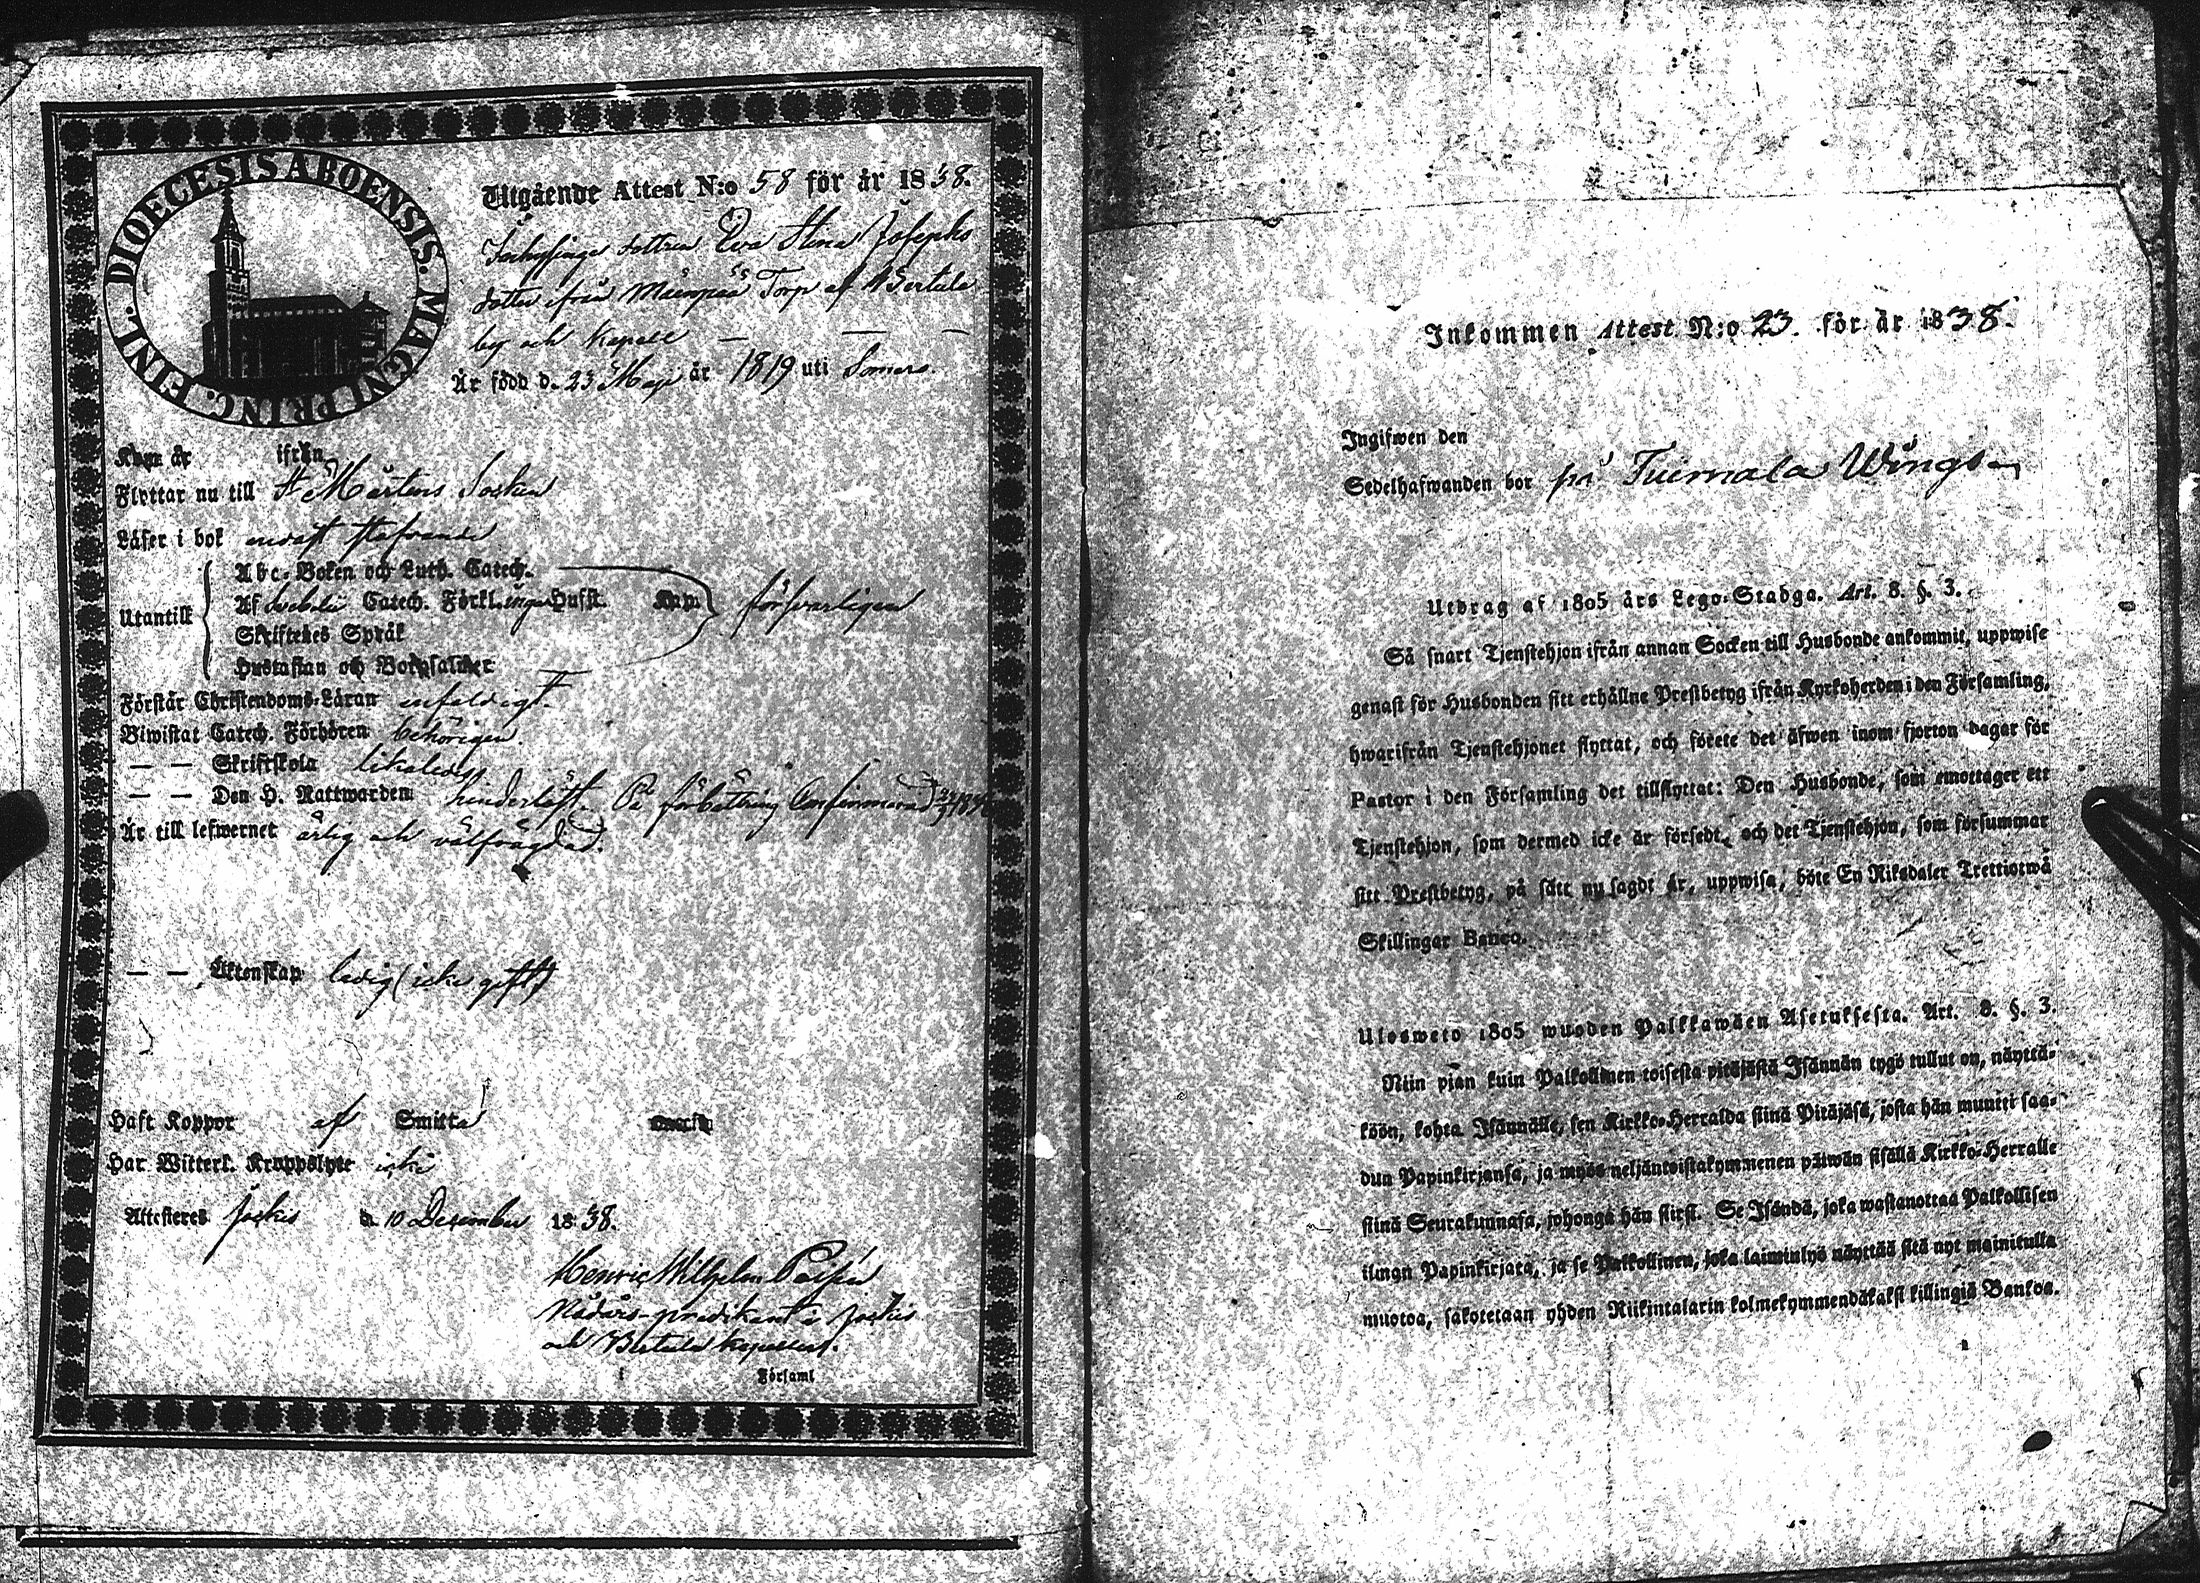 DIOECESIS ABOENSIS. MAGNI PRINC. FINL.
Utgående Attest N:o 58 för år 1838.
dottren Eva Stina Josephs
dotter ifrån Mäenpää Torp af Bertula
by och Kapell — — —
Är född d. 23 Maji år 1819 uti Somero
Kom år ifrån
Flyttar nu till St Mårtens Socken
Läser i bok endast stafvande
Utantill
Abc-Boken och Luth. Catech.
Af Svebelii Catech. Förkl. inga Hufst.
Skriftenes Språk
Hustaflan och Botpsalmer
försvarligen
Förstår Christendoms-Läran enfaldigt.
Biwistat Catech. Förhören behörigen.
— — Skriftskola likaledes
— — Den H. Nattwarden hinderlöst. På förbättring Confirmerad
Är till lefwernet ärlig och välfrägdad.
— — Äktenskap ledig (icke gift)
Haft Koppor af Smitta
Har Witterl. Kroppslyte icke
Attesteres Jockis d. 10 December 1838.
Henric Wilhelm
Nådårs-predikant i Jockis
och Bertula kapeller.
i Församl
Inkommen Attest N:o 23. för år 1838.
Ingifwen den
Sedelhafwanden bor på Tuimala Wångs
Utdrag af 1805 års Lego-Stadga. Art. 8. §. 3.
Så snart Tjenstehjon ifrån annan Socken till Husbonde ankommit, uppwise
genast för Husbonden sitt erhållne Prestbetyg ifrån Kyrkoherden i den Församling,
hwarifrån Tjenstehjonet flyttat, och förete det äfwen inom fjorton dagar för
Pastor i den Församling det tillflyttat: Den Husbonde, som emottager ett
Tjenstehjon, som dermed icke är försedt, och det Tjenstehjon, som försummar
sitt Prestbetyg, på sätt nu sagdt är, uppwisa, böte En Riksdaler Trettiotwå
Skillingar Banco.
Ulosweto 1805 wuoden Palkkawäen Asetuksesta. Art. 8. §. 3.
Niin pian kuin Palkollinen toisesta pitäjästä Isännän tygö tullut on, näyttä-
köön, kohta Isännälle, sen Kirkko-Herralda siinä Pitäjäsä, josta hän muutti saa-
dun Papinkirjansa, ja myös neljäntoistakymmenen päiwän sisällä Kirkko-Herralle
siinä Seurakunnasa, johonga hän siirsi. Se Isändä, joka wastanottaa Palkollisen
ilman Papinkirjata, ja se Palkollinen, joka laiminlyö näyttää sitä nyt mainitulla
muotoa, sakotetaan yhden Riikintalarin kolmekymmendäkaksi killingiä Bankoa.